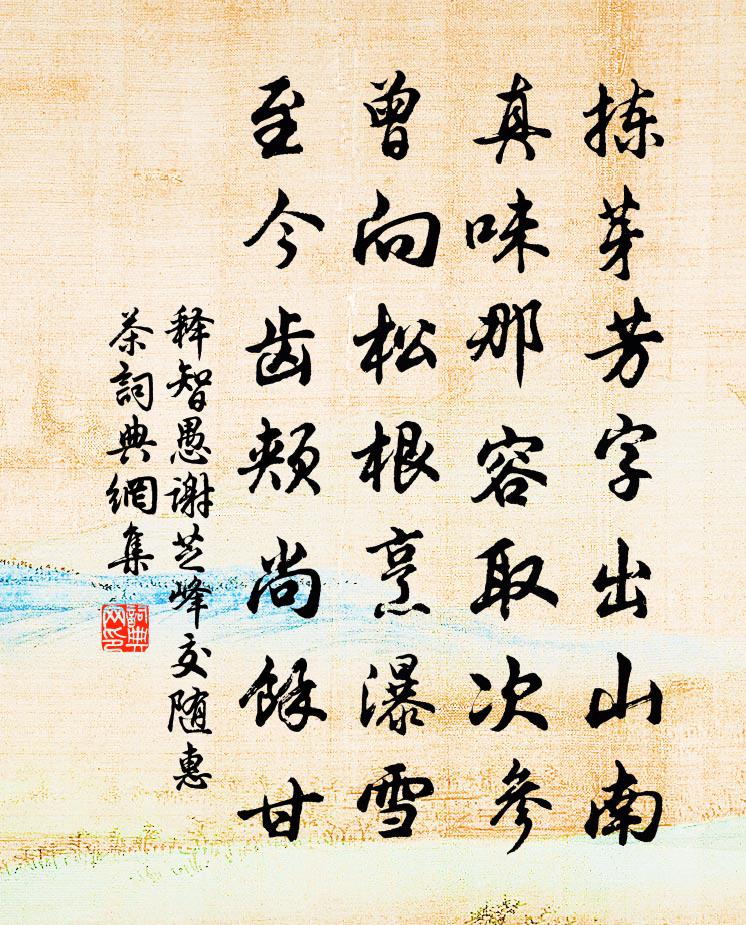 拣芽芳字出山南
真味那容取次参
曾向松根烹瀑雪
至今齿颊尚馀甘
释智愚谢芝峰交随惠
茶詞典網集
詞典網印